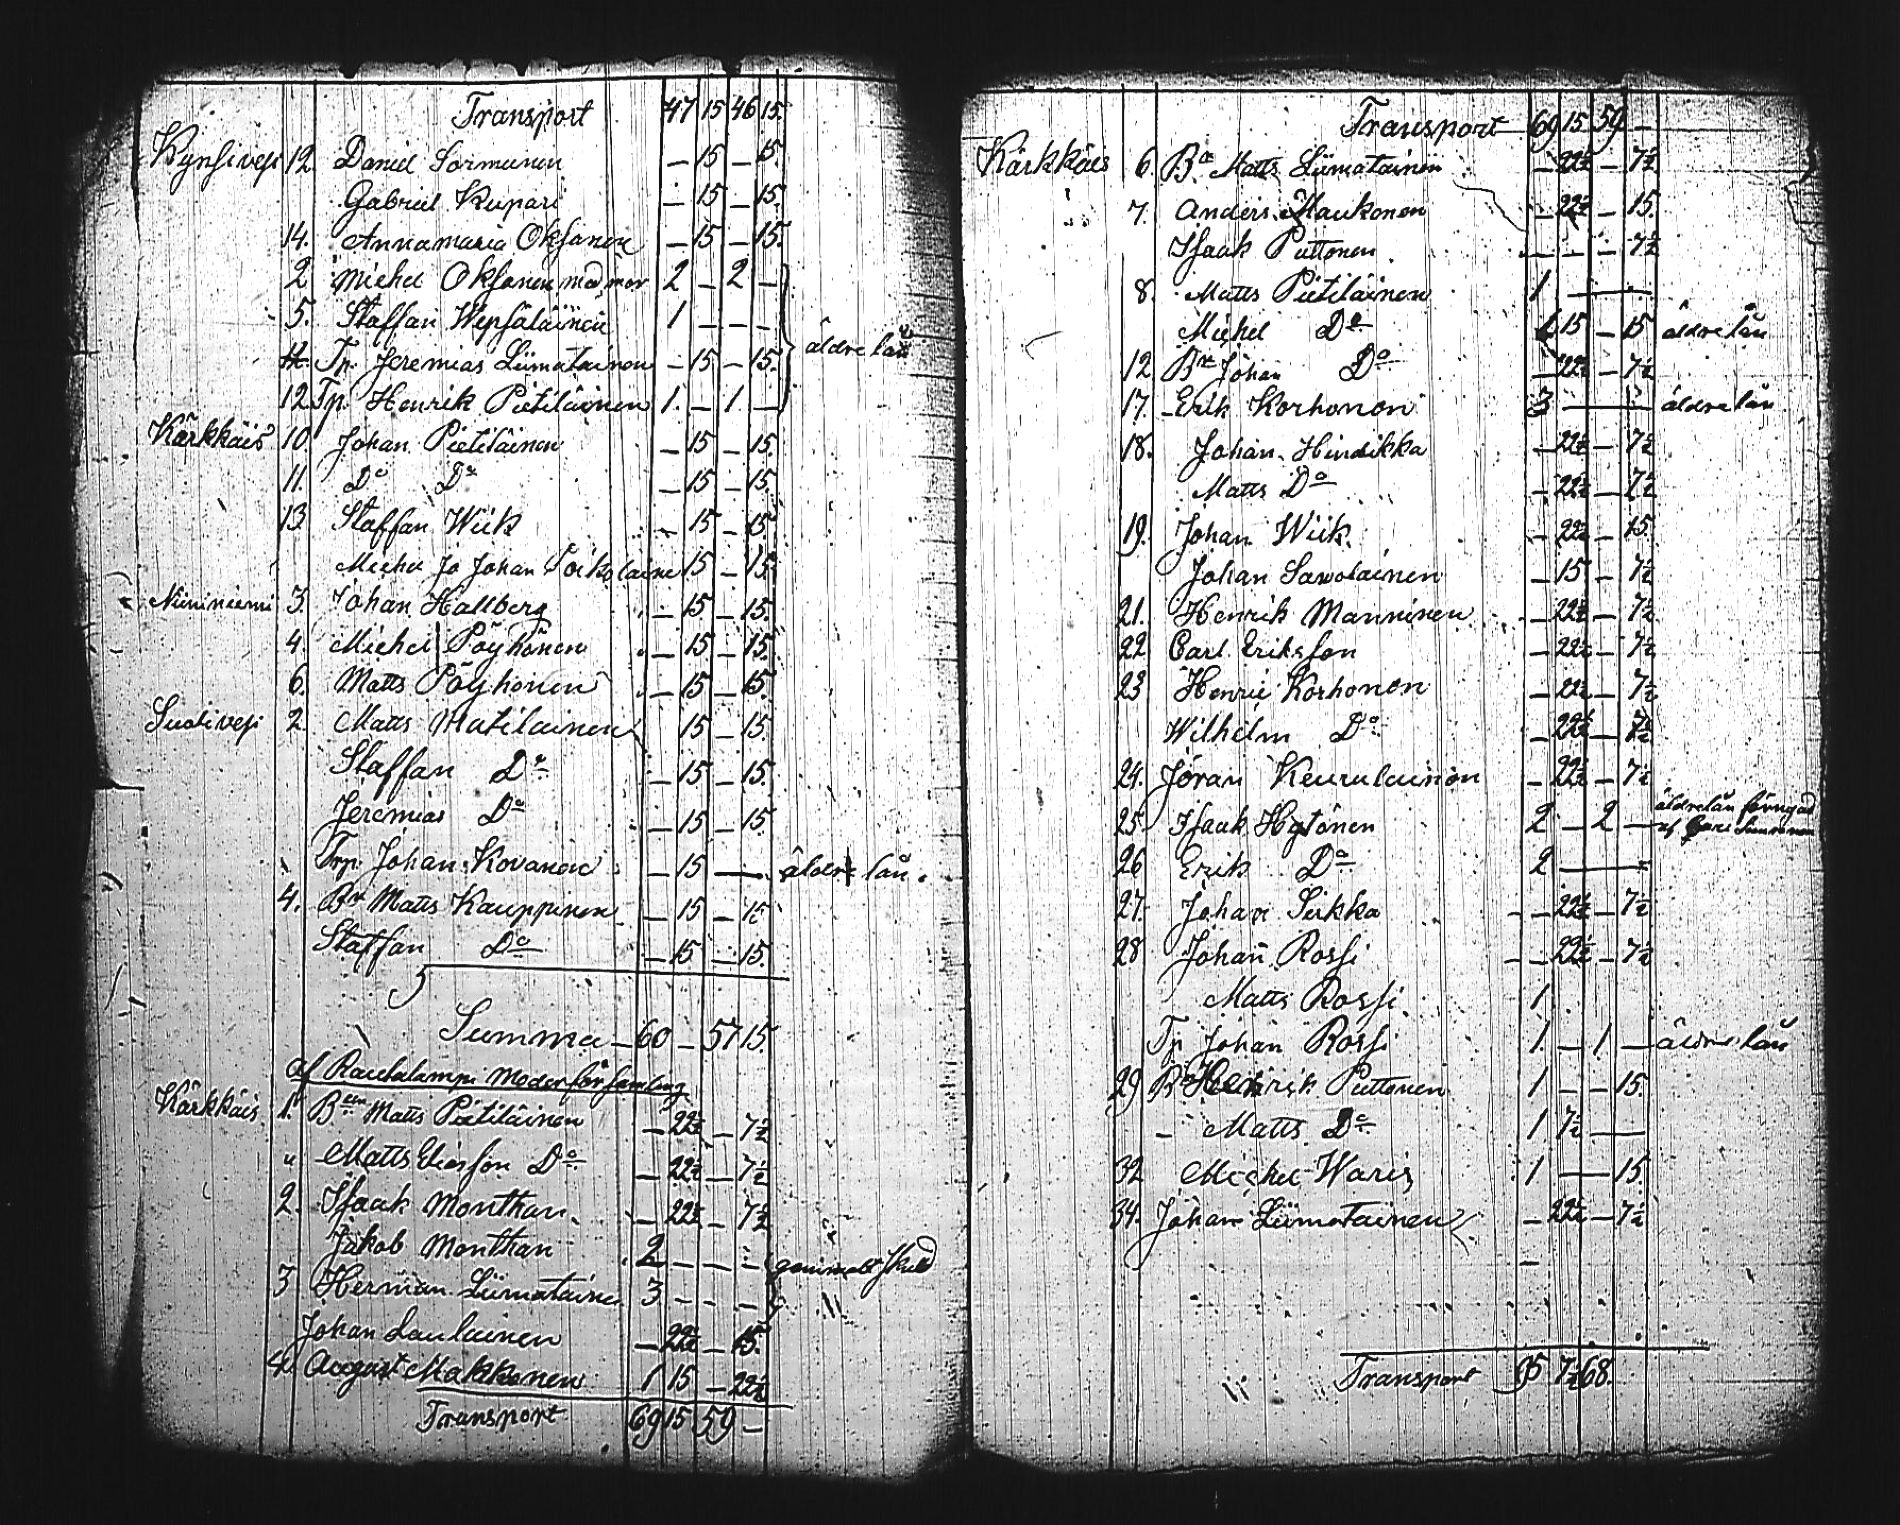 Transport 47 15 46 15.
Kynsivesi 12. Daniel Sormunen — 15 — 15
Gabriel Kupari — 15 — 15.
14. Annamaria Oksanen — 15 — 15.
2 Michel Oksanen med mor 2 — 2 —
5. Staffan Wepsäläinen 1 — — —
äldre lån
Tp. Jeremias Liimatainen — 15 — 15.
12 Tp. Henrik Pietiläinen 1. — 1 —
Kärkkäis 10. Johan Pietiläinen — 15 — 15.
11. Do Do — 15 — 15.
13 Staffan Wiik — 15 — 15
Michel Jo Johan Toikolainen 15 — 15
Niinineemi 3. Johan Hallberg — 15 — 15.
4. Michel Pöyhönen — 15 — 15.
6. Matts Pöyhönen — 15 — 15.
Suolivesi 2. Matts Matilainen 15 — 15.
Staffan Do — 15 — 15.
Jeremias Do — 15 — 15.
Trp. Johan Kovanen — 15 — äldre lån.
4. Br Matts Kauppinen — 15 — 15
Staffan Do — 15 — 15.
Summa — 60 — 57 15.
af Rautalampi Moderförsamling
Kärkkäis 1. Bden Matts Pietiläinen — 22½ — 7½
" Matts Eliasson Do — 22½ — 7½
2. Isaak Monthan — 22½ — 7½
Jakob Monthan 2 — — — gammalt skuld
3 Herman Liimatainen 3 — — —
Johan Laulainen — 22½ — 15.
4. August Makkonen 1 15 — 22½
Transport 69 15 59 —
Transport 69 15 59 —
Kärkkäis 6. Bo Matts Liimatainen — 22½ — 7½
7. Anders Haukonen — 22½ — 15.
Isaak Puttonen — — — 7½
8. Matts Pietiläinen 1 — —
Michel Do 1 15 — 15 äldre lån
12 Br Johan Do — 22½ — 7½
17. Erik Korhonen 3 — — äldre lån
18. Johan Hindikka — 22½ — 7½
Matts Do — 22½ — 7½
19. Johan Wiik. — 22½ — 15.
Johan Sawolainen — 15 — 7½
21. Henrik Manninen — 22½ — 7½
22 Carl Eriksson — 22½ — 7½
23 Henric Korhonen — 22½ — 7½
Wilhelm Do — 22½ — 7½
24. Jöran Keurulainen — 22½ — 7½
25 Isaak Hytönen 2 — 2 — äldre lån
af
26 Erik Do 2 — —
27. Johan Sirkka — 22½ — 7½
28 Johan Rossi — 22½ — 7½
Matts Rossi 1
Tp Johan Rossi 1. — 1 — äldre lån
29 Br Henrik Puttonen 1 — — 15.
— Matts Do 1 7½ —
32 Michel Waris 1 — — 15.
34. Johan Liimatainen — 22½ — 7½
Transport 95 7½ 68.